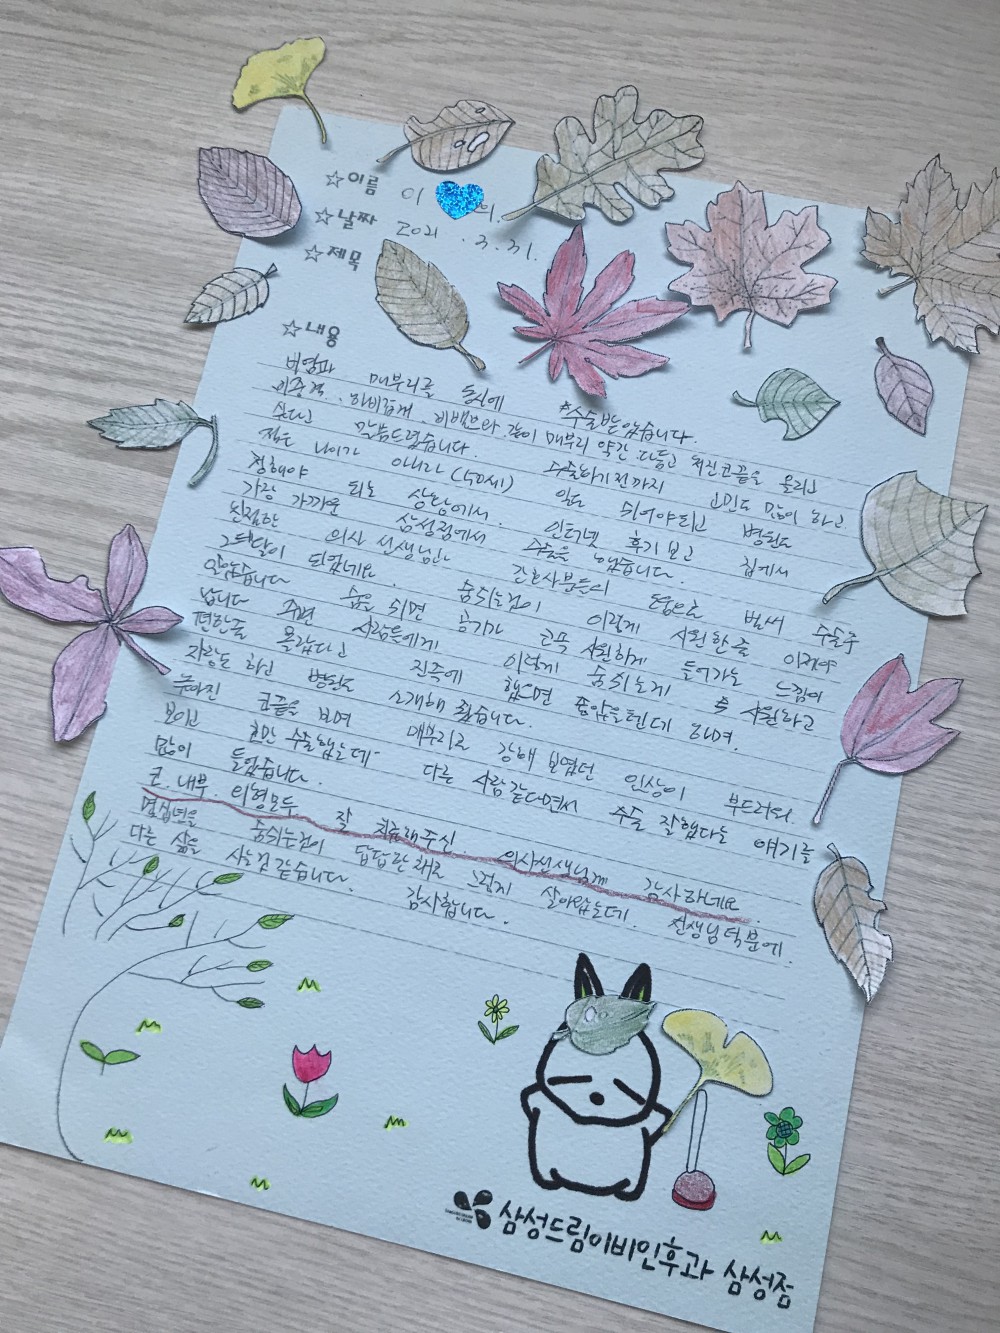 ☆이름 이 의.
☆날짜 2021 . 3. 31.
☆제목
☆내용
비염과 매부리를 동시에 수술받았습니다.
비중격. 하비갑개. 비밸브와 같이 매부리 약간 다듬고 쳐진코끝을 올리고
싶다고 말씀드렸습니다.
젊은 나이가 아니라 (50세) 수술하기전까지 고민도 많이 하고
정해야 되는 상황에서. 일도 쉬어야되고 병원도
가장 가까운 삼성점에서 인터넷 후기 보고 집에서
친절한 의사 선생님과 수술을 했습니다.
간호사분들의 도움으로 벌써 수술후
그뒤달이 되었네요. 숨쉬는것이 이렇게 시원한줄 이제야
알았습니다 숨을 쉬면 공기가 코끝 시원하게 들어가는 느낌이
납니다 주변 사람들에게 이렇게 숨쉬는게 시원하고
편한줄 몰랐다고 진즉에 했으면 좋았을텐데 하며.
자랑도 하고 병원도 소개해 줬습니다.
높아진 코끝을 보며 매부리로 강해 보였던 인상이 부드러워
보이고 코만 수술했는데 다른 사람같다면서 수술 잘했다는 얘기를
많이 들었습니다.
코. 내부. 외형모두 잘 치료해주신. 의사선생님께 감사하네요.
몇십년을 숨쉬는것이 답답한채로 그렇게 살아왔는데. 선생님덕분에.
다른 삶을 사는것 같습니다. 감사합니다.
삼성드림이비인후과 삼성점